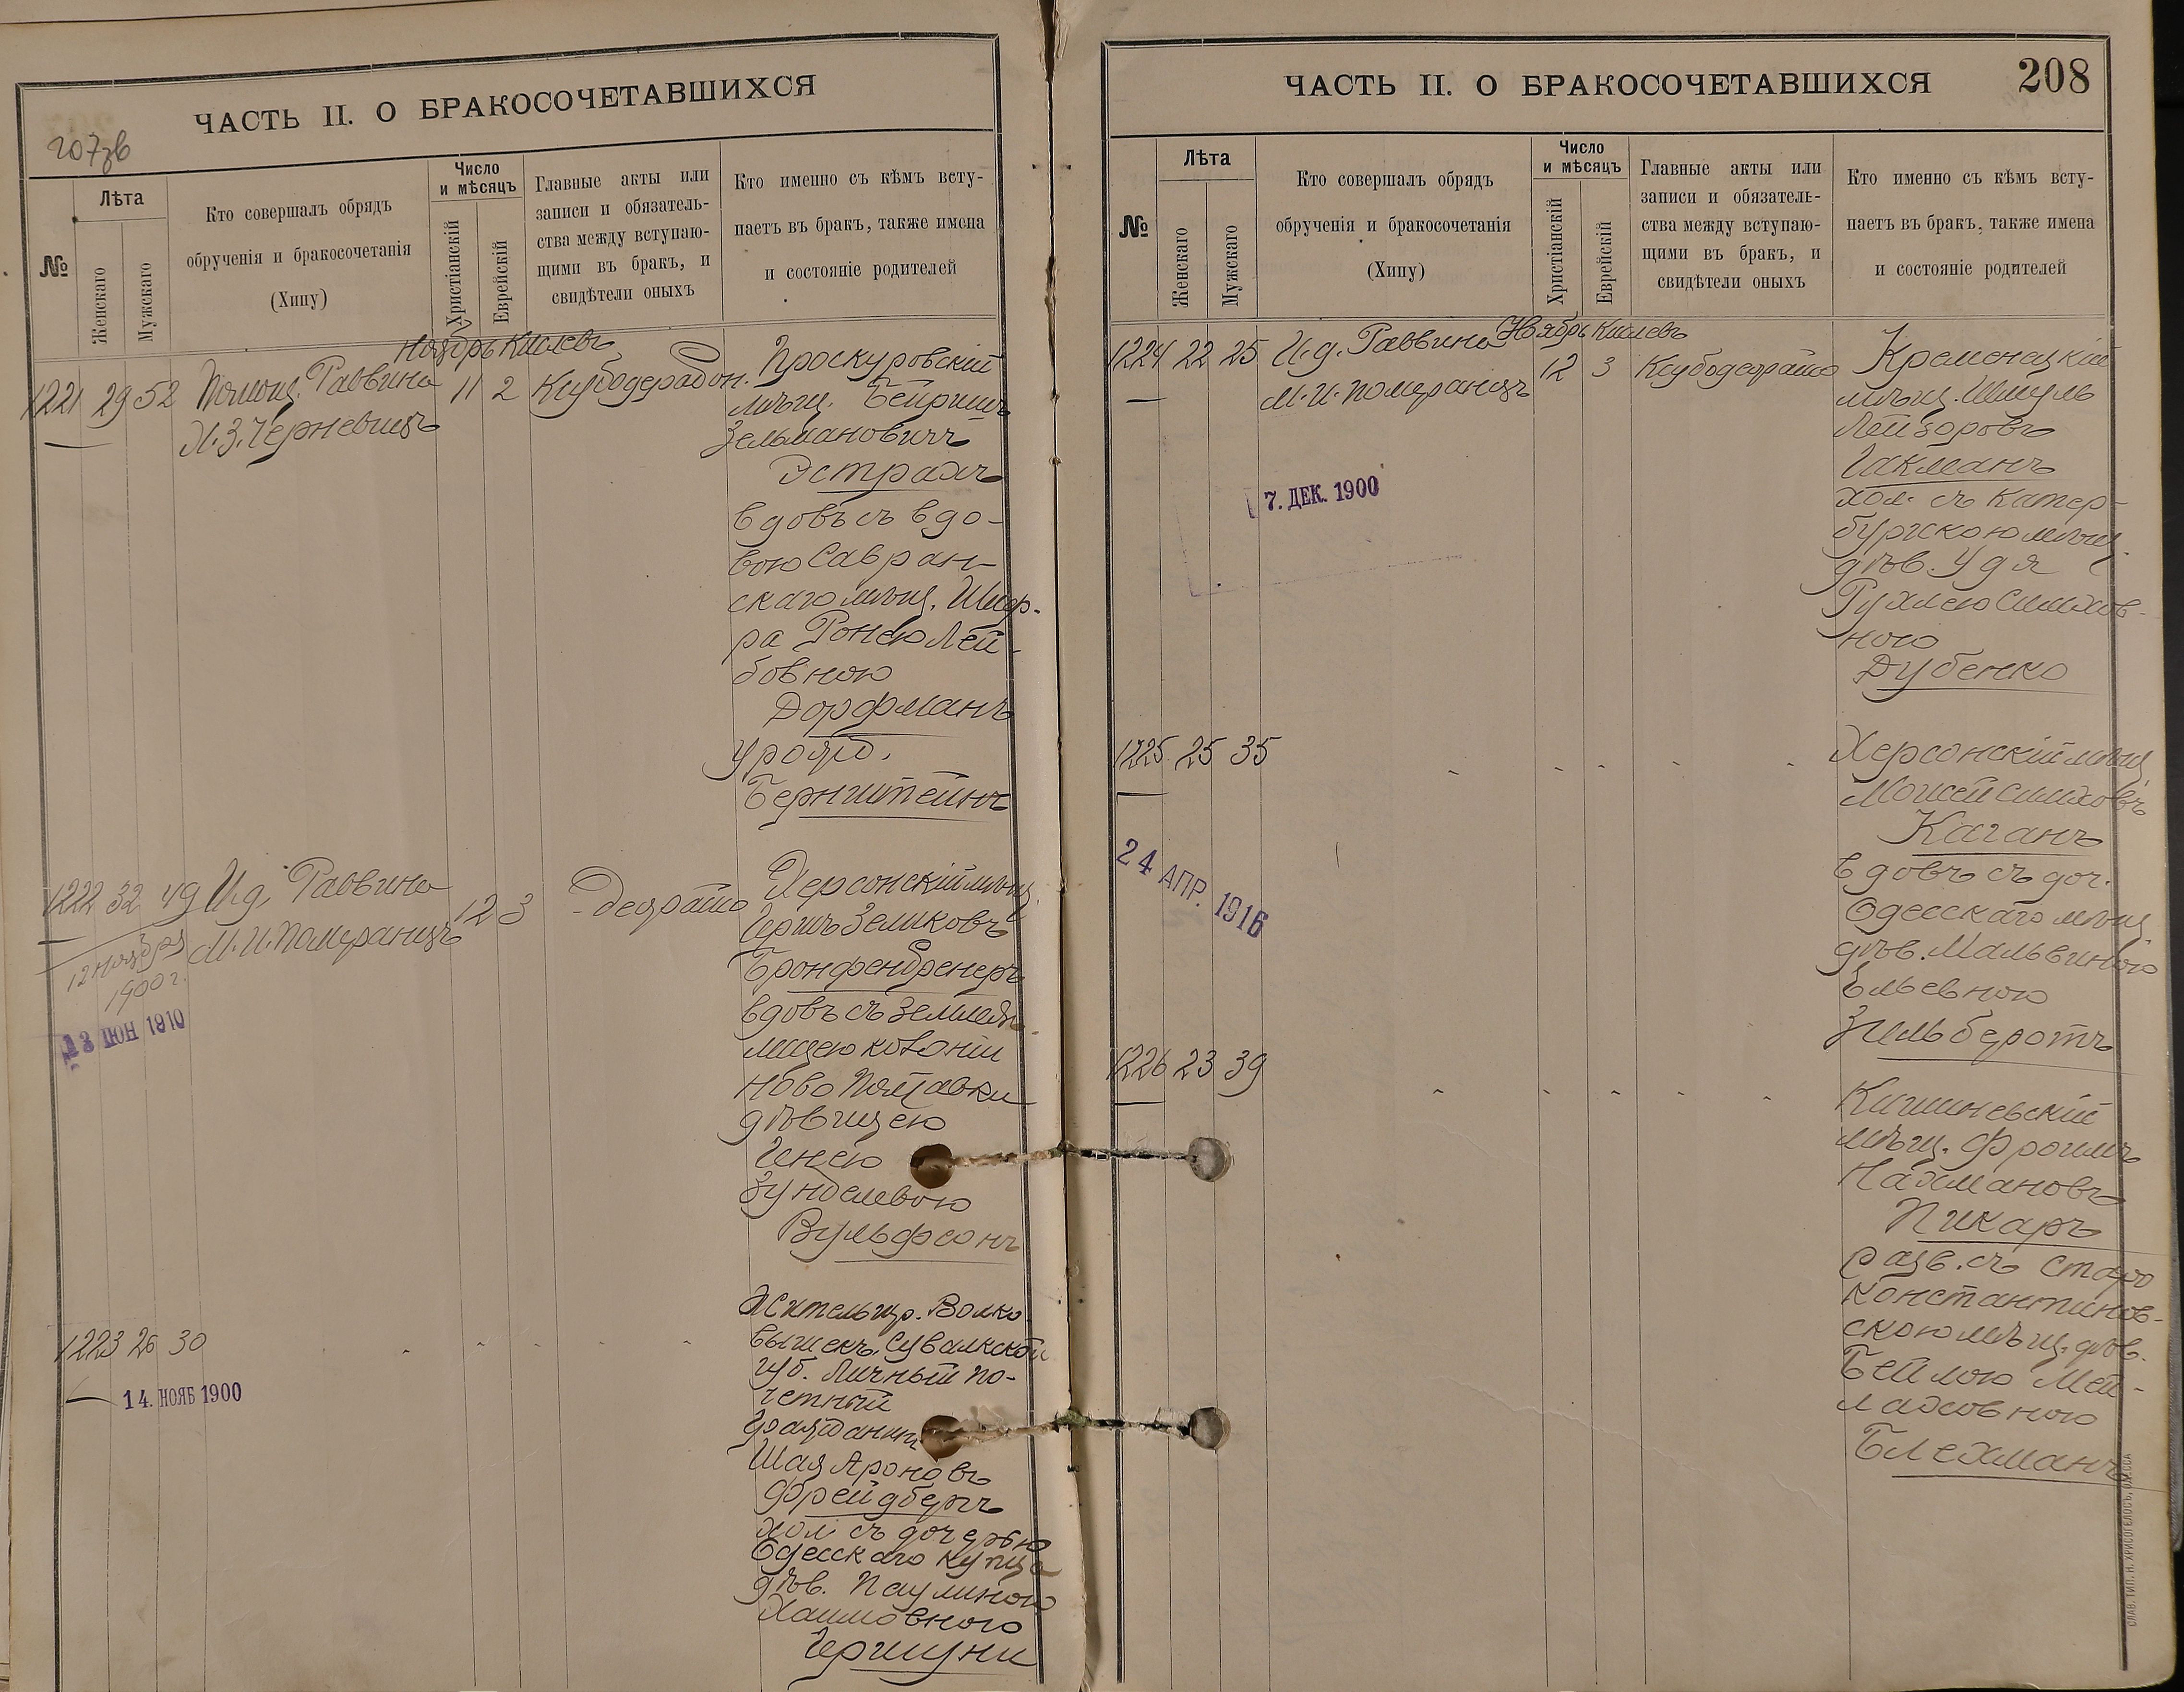 ЧАСТЬ II. О БРАКОСОЧЕТАВШИХСЯ
207зв
№
Лѣта
Женскаго
Мужскаго
Кто совершалъ обрядъ
обрученія и бракосочетанія
(Хипу)
Число
и мѣсяцъ
Христіанскій
Еврейскій
Главные акты или
записи и обязатель-
ства между вступаю-
щими въ бракъ, и
свидѣтели оныхъ
Кто именно съ кѣмъ всту-
паетъ въ бракъ, также имена
и состояніе родителей
Ноябрь Кислевъ
1221 29 52 Помощ. Раввина 11 2
Х.З. Черневицъ
Проскуровскій
мѣщ. Бейришъ
Зельмановичъ
Эстрахъ
вдовъ съ вдо-
вою Савран-
скаго мѣщ. Шиф-
ра Ронею Лей-
бовною
Дорфманъ
урожд.
Бернштейнъ
1222 32 49 И.д. Раввина 12 3
М.И. Померанцъ
12 ноября
1900 г.
13 ІЮН 1910
Херсонскій мѣщ.
Гершъ Зеликовъ
Бронфенбренеръ
вдовъ съ землед.
колоніи
Ново Полтавки
дѣвицею
Генею
Зунделевою
Вульфсонъ
1223 26 30
14. НОЯБ 1900
Житель гор. Волко-
вышекъ, Сувалкской
губ. Личный по-
четный
гражданинъ
Шая Ароновъ
Фрейдбергъ
хол. съ дочерью
Одесскаго купца
дѣв. Паулиною
Хаимовною
Гершуни
ЧАСТЬ II. О БРАКОСОЧЕТАВШИХСЯ
208
№
Лѣта
Женскаго
Мужскаго
Кто совершалъ обрядъ
обрученія и бракосочетанія
(Хипу)
Число
и мѣсяцъ
Христіанскій
Еврейскій
Главные акты или
записи и обязатель-
ства между вступаю-
щими въ бракъ, и
свидѣтели оныхъ
Кто именно съ кѣмъ всту-
паетъ въ бракъ, также имена
и состояніе родителей
Ноябрь Кислевъ
1224 22 25 И.д. Раввина 12 3
М.И. Померанцъ
7. ДЕК. 1900
Кременецкій
мѣщ. Шмуль
Лейзоровъ
Гакманъ
хол. съ Катер-
бургскою мѣщ.
дѣв. Удя
Рухлею Симхов-
ною
Дубенко
1225 25 35
24 АПР. 1916
Херсонскій мѣщ.
Мошей Симховъ
Каганъ
вдовъ съ доч.
Одесскаго мѣщ.
дѣв. Мальвиною
Ельевною
Зильберотъ
1226 23 39
Кишиневскій
мѣщ. Фроимъ
Нахмановъ
Пикаръ
разв. съ Старо
константинов-
скою мѣщ. дѣв.
Бейлою Мей-
лаховною
Блехманъ
СЛАВ. ТИП. Н. ХРИСОГЕЛОСЪ, ОДЕССА